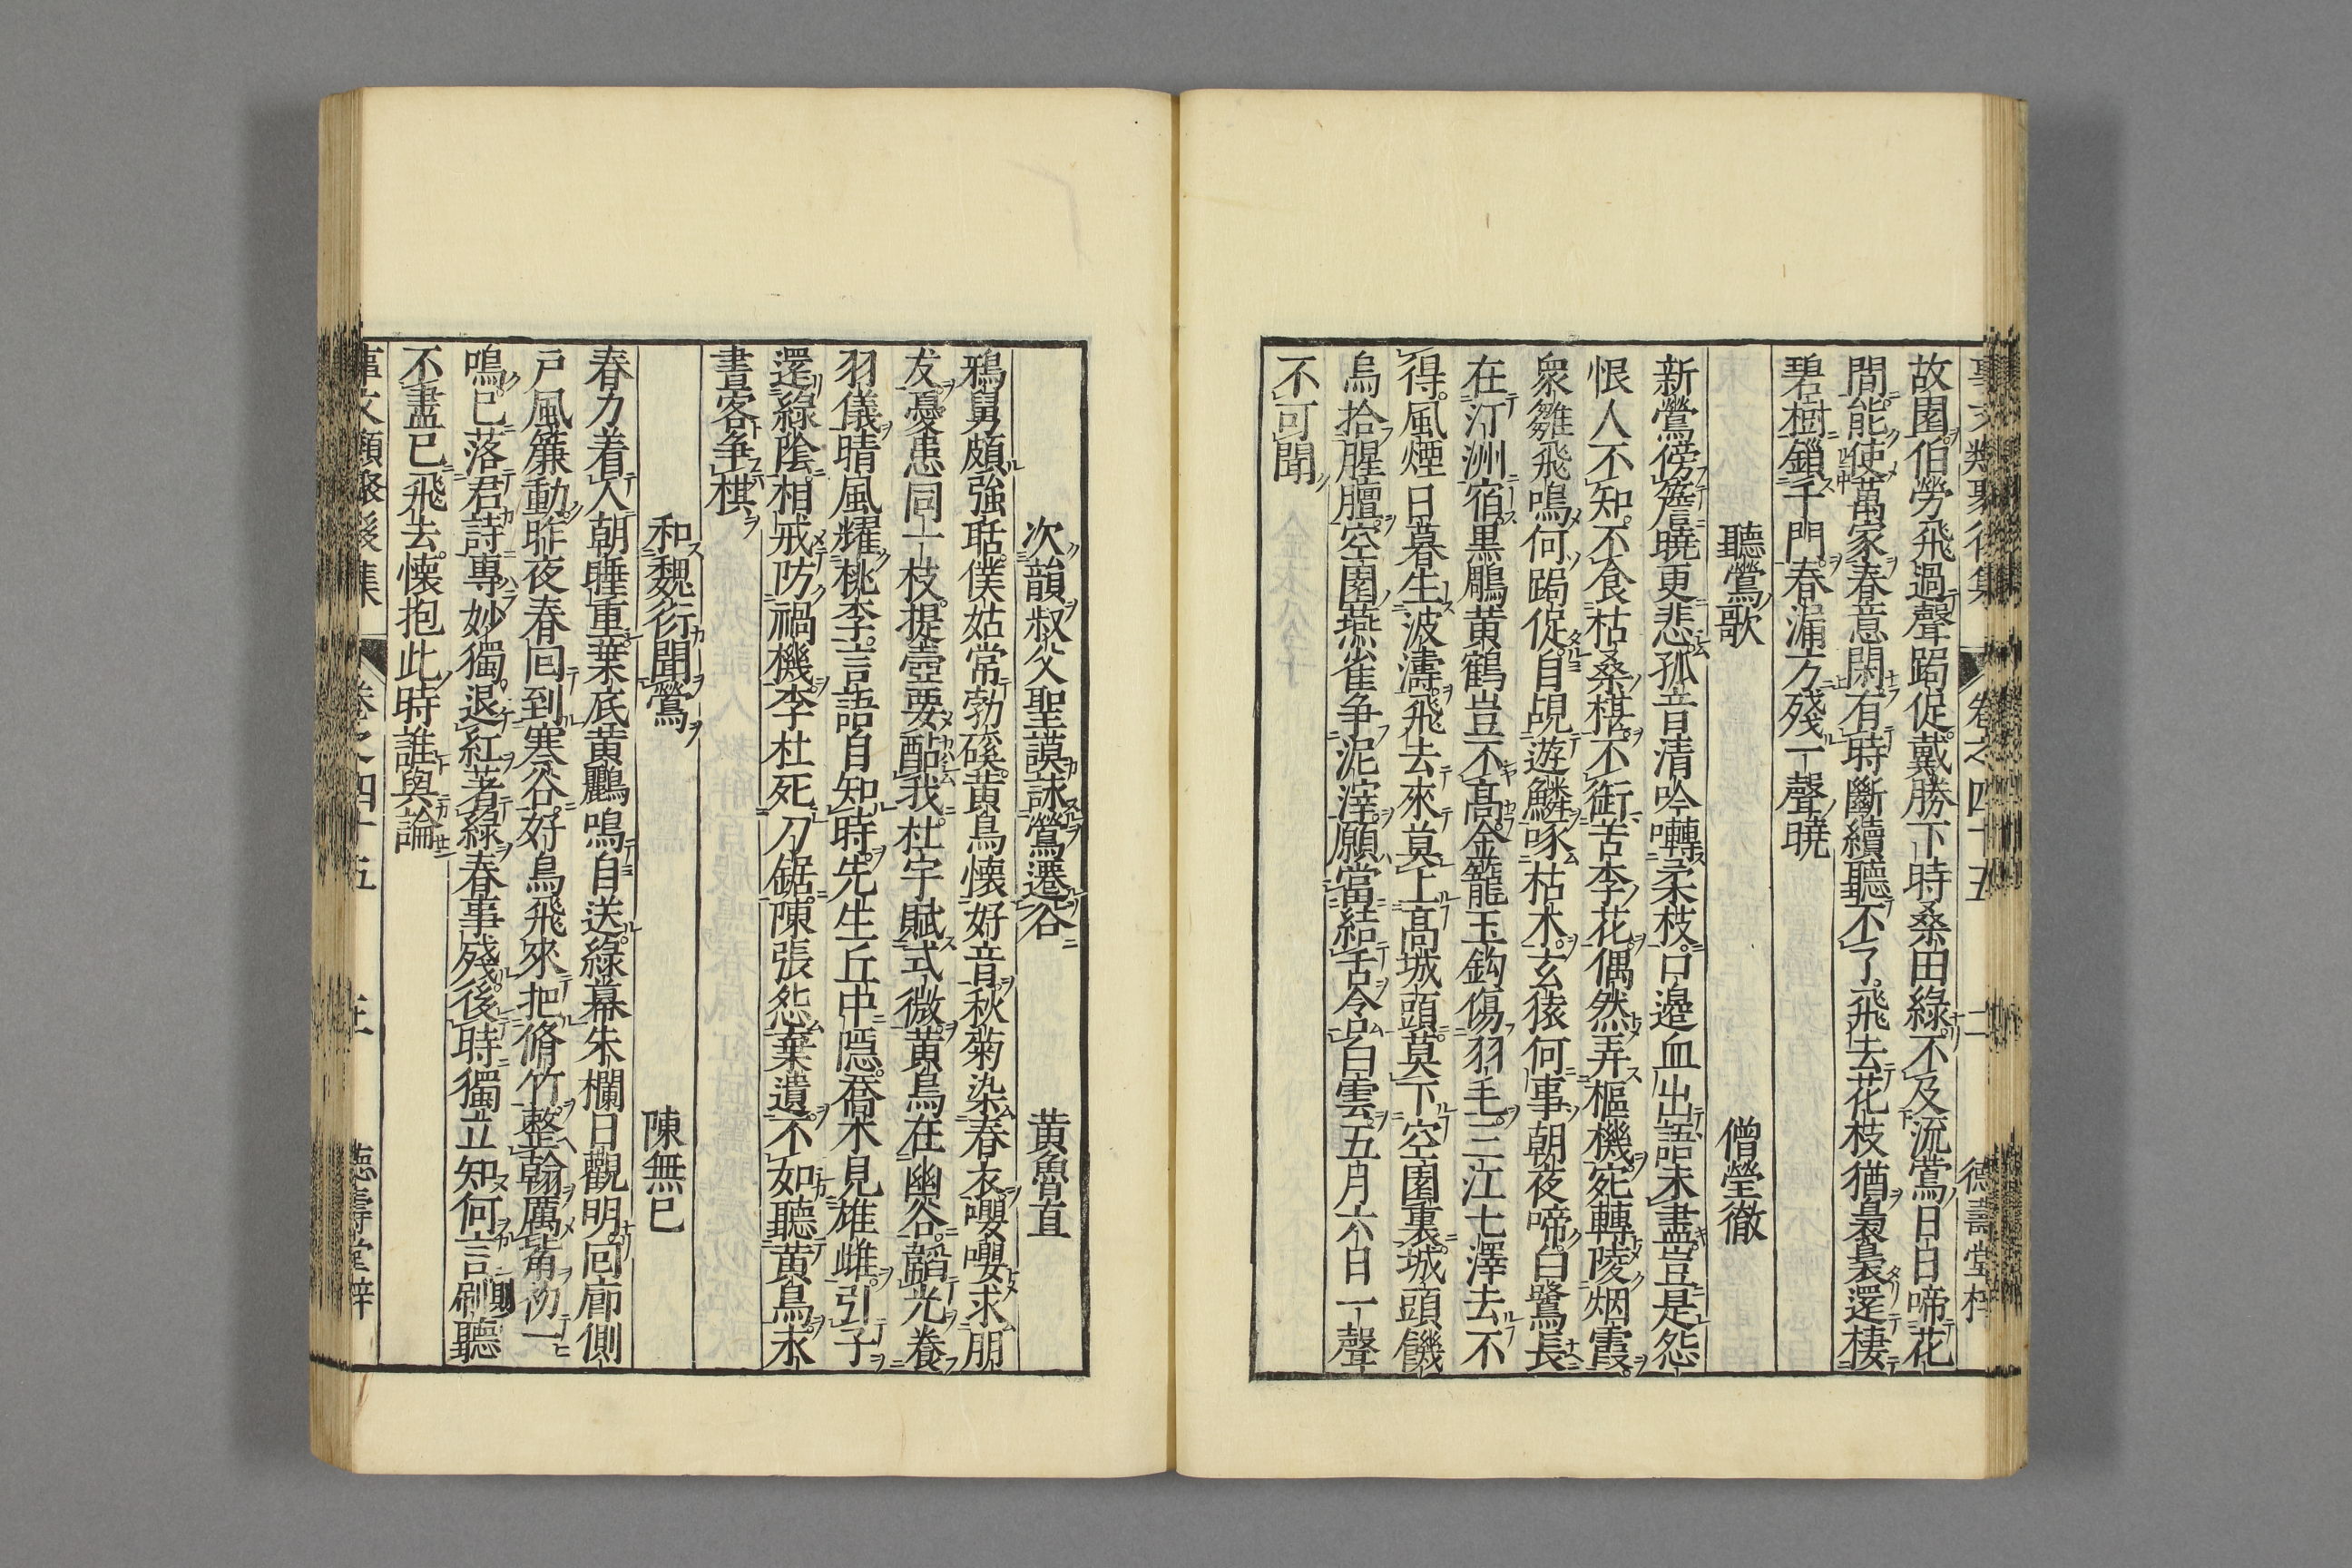 事文類聚後集 卷之四十五 二 德壽堂梓
故園伯勞飛過聲跼促戴勝下時桑田綠不及流鶯日日啼花
間能使萬家春意閑有時斷續聽不了飛去花枝猶裊裊還棲
碧樹鎖千門春漏方殘一聲曉
聽鶯歌 僧瑩徹
新鶯傍簷曉更悲孤音清吟囀柔枝口邊血出語未盡豈是怨
恨人不知不食枯桑椹不銜苦李花偶然弄樞機宛轉陵烟霞
衆雛飛鳴何跼促自覘遊鱗啄枯木玄猿何事朝夜啼白鷺長
在汀洲宿黒鵰黄鶴豈不髙金籠玉鈎傷羽毛三江七澤去不
得風煙日暮生波濤飛去來莫上髙城頭莫下空園裏城頭饑
烏拾腥膻空園燕雀争泥滓願當結舌含白雲五月六日一聲
不可聞
次韻叔父聖謨詠鶯遷谷 黄魯直
鴉舅頗強聒僕姑常勃磎黄鳥懐好音秋菊染春衣嚶嚶求朋
友憂患同一枝提壺要酤我杜宇賦式微黄鳥在幽谷韜光養
羽儀晴風耀桃李言語自知時先生丘中隠喬木見雄雌引子
還綠陰相戒防禍機李杜死刀鋸陳張怨棄遺不如聽黄鳥永
晝客争棋
和魏衍聞鶯 陳無已
春力着人朝睡重葉底黄鸝鳴自送綠幕朱欄日觀明回廊側
戸風簾動昨夜春回到寒谷好鳥飛來把脩竹整翰厲觜初一
鳴已落君詩專妙獨退紅著綠春事殘後時獨立知何言側聽
不盡已飛去懐抱此時誰與論
事文類聚後集 卷之四十五 三 德壽堂梓